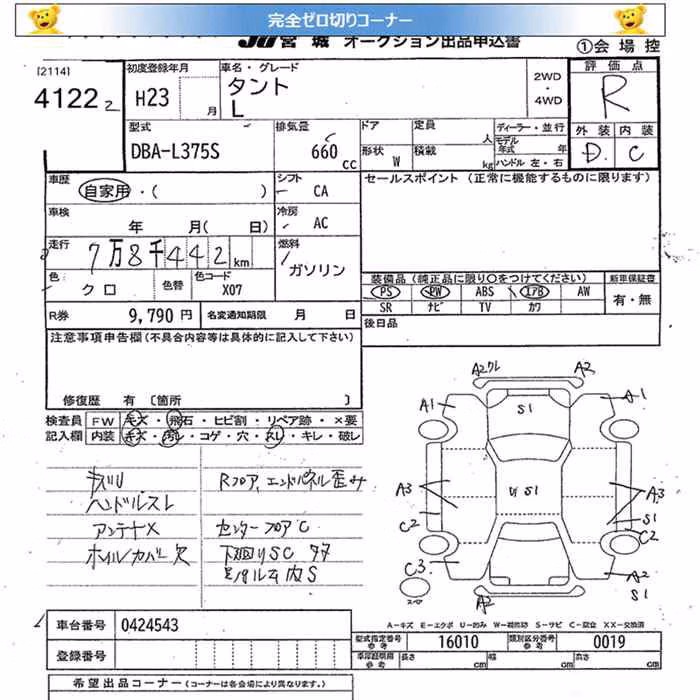 完全ゼロ切りコーナー
JU宮城 オークション出品申込書
①会場控
[2114]
4122 2
初度登録年月
H23 月
車名・グレード
タント
L
2WD
・
4WD
評価点
R
型式
DBA-L375S
排気量
660 cc
ドア
定員 人
形状 W
積載 kg
ディーラー・並行
モデル年式 年
ハンドル 左・右
外装 内装
D C
車歴
自家用・( )
シフト
CA
セールスポイント (正常に機能するものに限ります)
車検
年 月( 日)
冷房
AC
走行
7万8千442km
燃料
ガソリン
色
クロ
色替
色コード
X07
装備品(純正品に限り○をつけてください)
新車保証書
PS PW ABS エアB AW
有・無
SR ナビ TV カワ
R券
9,790円
名変通知期限 月 日
後日品
注意事項申告欄(不具合内容等は具体的に記入して下さい)
修復歴 有 〔箇所 〕
検査員 FW キズ・飛石・ヒビ割・リペア跡・×要
記入欄 内装 キズ・汚レ・コゲ・穴・スレ・キレ・破レ
ハンドルスレ
アンテナX
ホイルカバー欠
Rフロア、エンドパネル歪み
センターフロアC
下廻りSC
A2ワレ A2
A1 S1 A1
A3 S1 A3
C2 S1
C2
C3 A2
S1
スペア A2
A−キズ E−エクボ U−凹み W−補修跡 S−サビ C−腐食 XX−交換済
車台番号 0424543
登録番号
型式指定番号 参考 16010
類別区分番号 参考 0019
長さ cm 幅 cm 高さ cm
希望出品コーナー(コーナーは各会場により異なります。)